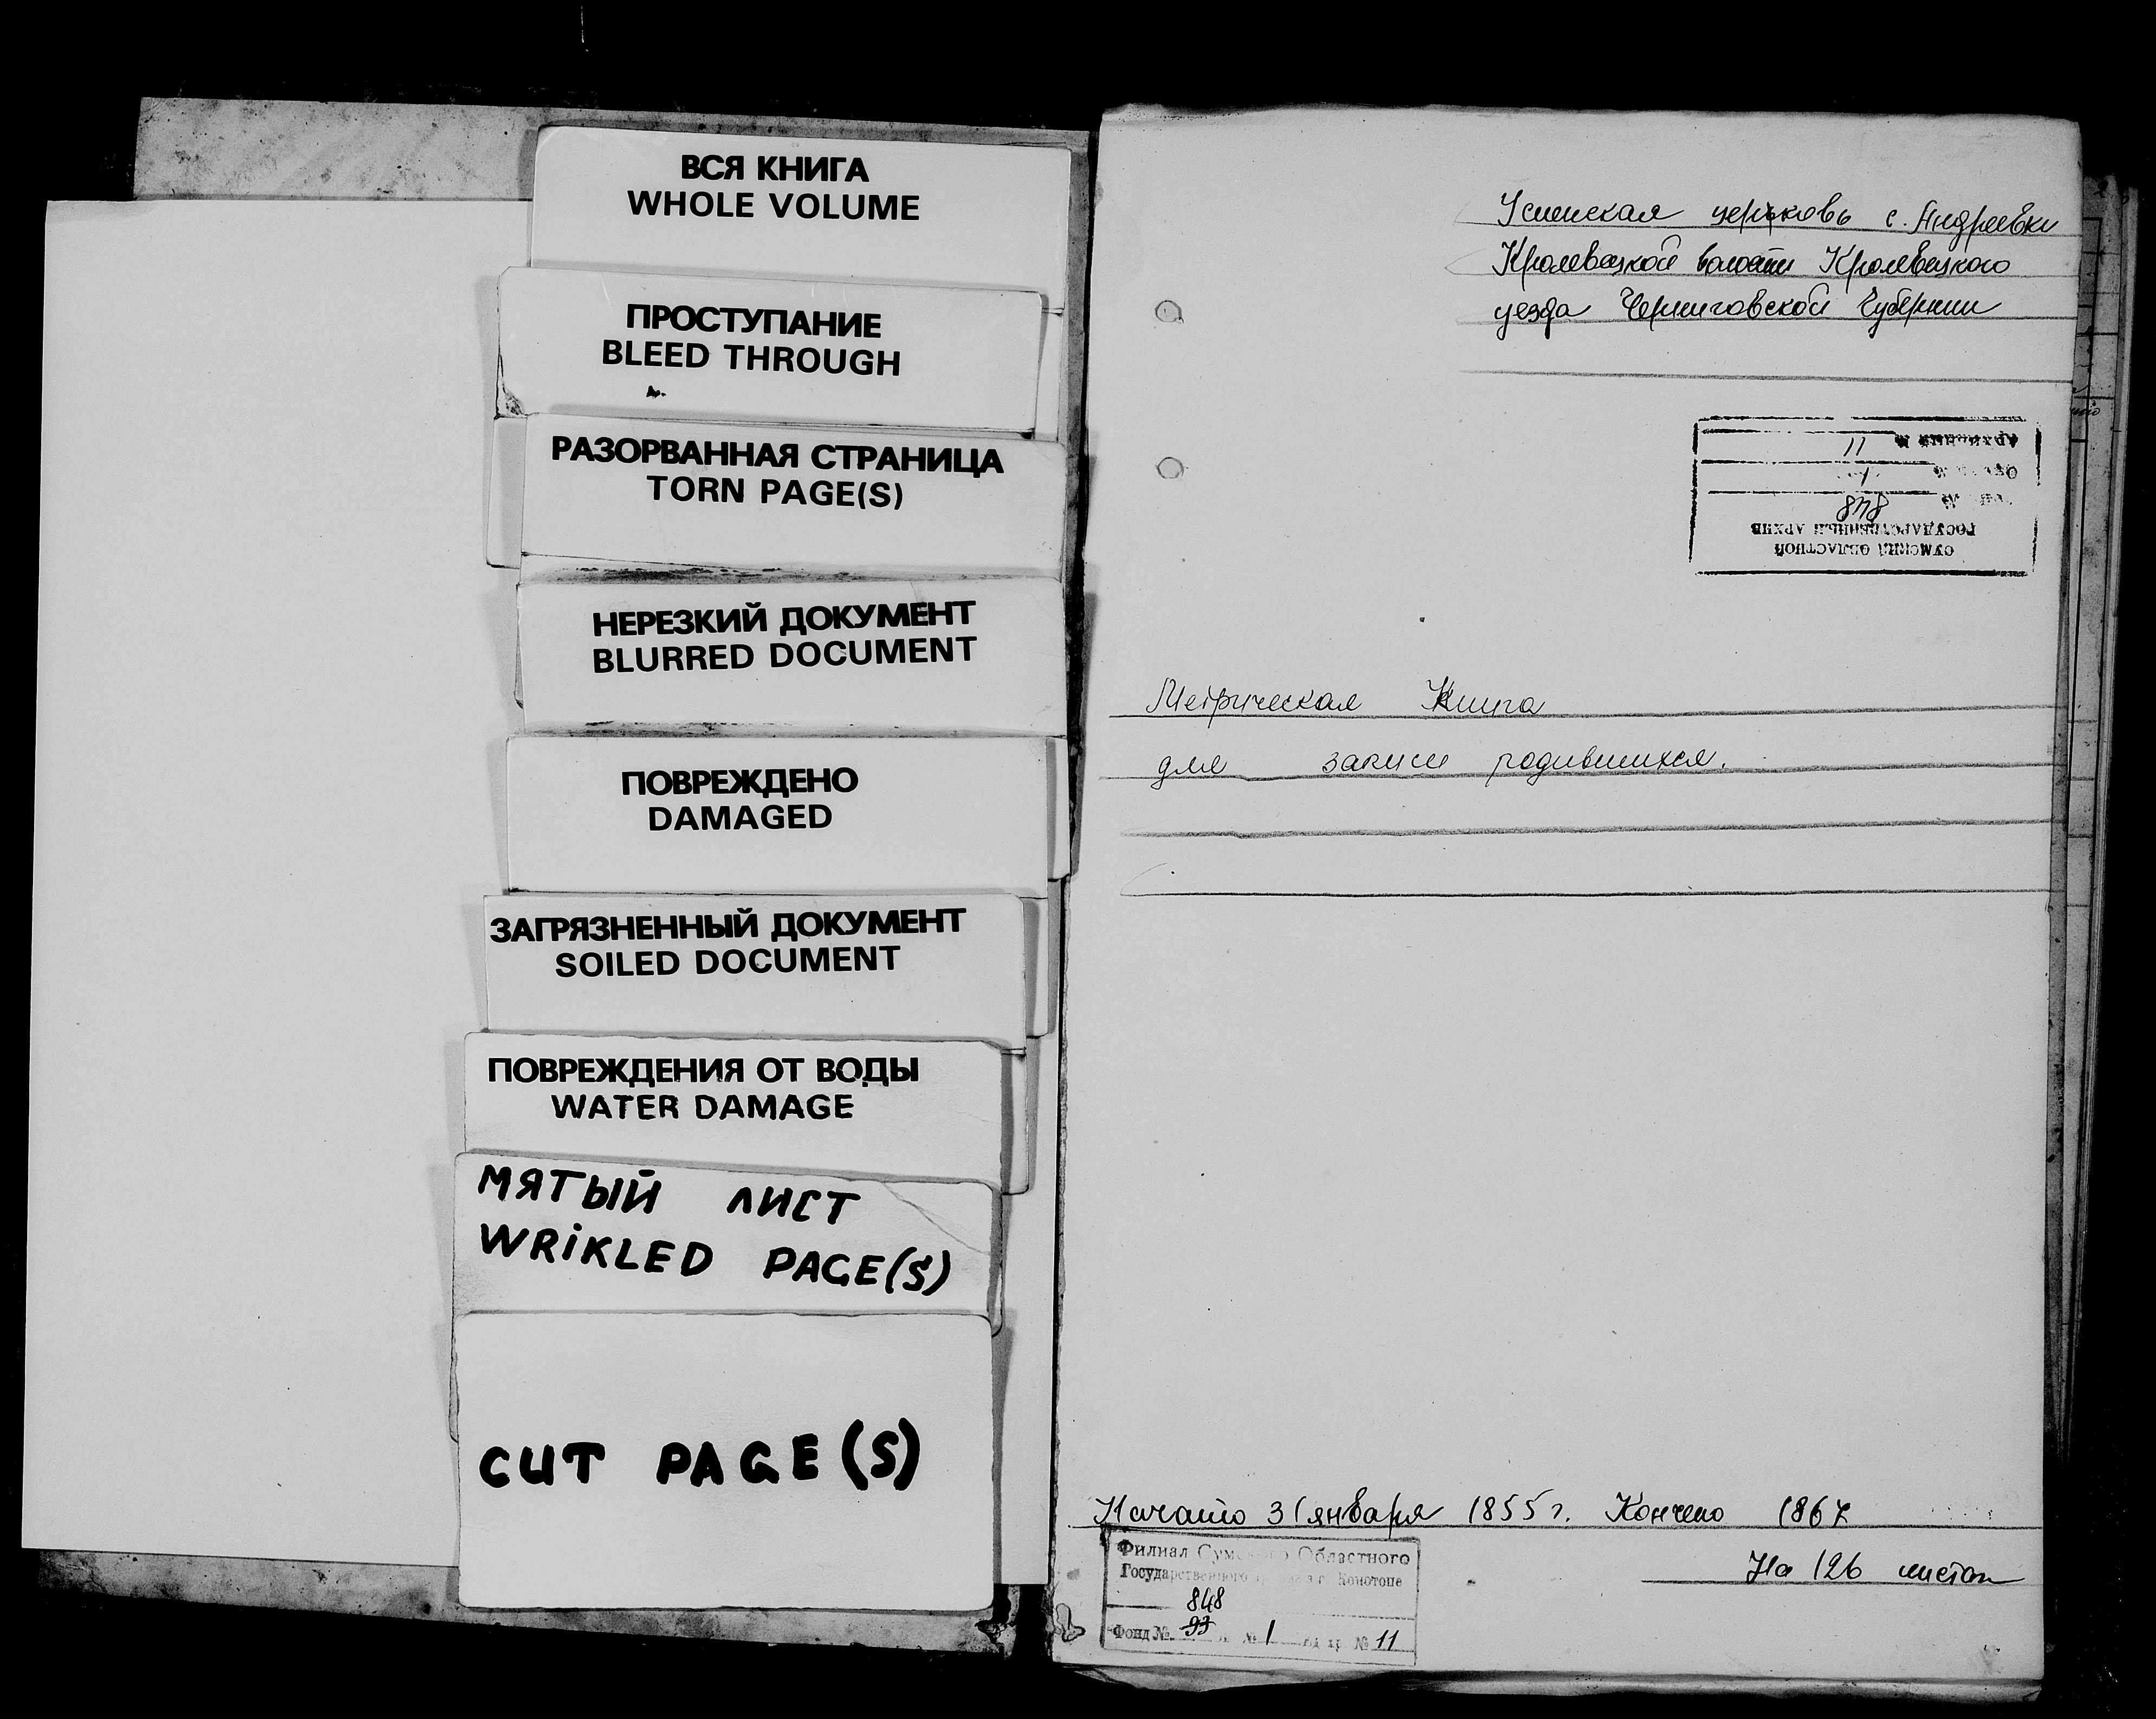 ВСЯ КНИГА
WHOLE VOLUME
ПРОСТУПАНИЕ
BLEED THROUGH
РАЗОРВАННАЯ СТРАНИЦА
TORN PAGE(S)
НЕРЕЗКИЙ ДОКУМЕНТ
BLURRED DOCUMENT
ПОВРЕЖДЕНО
DAMAGED
ЗАГРЯЗНЕННЫЙ ДОКУМЕНТ
SOILED DOCUMENT
ПОВРЕЖДЕНИЯ ОТ ВОДЫ
WATER DAMAGE
МЯТЫЙ ЛИСТ
WRiKLED PAGE(S)
CUT PAGE(S)
Успенская церьковь с. Андреевки
Кролевецкой волости Кролевецкого
уезда Черниговской Губернии
СУМСКИЙ ОБЛАСТНОЙ
ГОСУДАРСТВЕННЫЙ АРХИВ
848
1
11
Метрическая Книга
для записи родившихся.
Начато 31 января 1855 г. Кончено 1867
На 126 листах
Филиал Сумского Областного
Государственного Конотопе
848
Фонд № 93 № 1 № 11